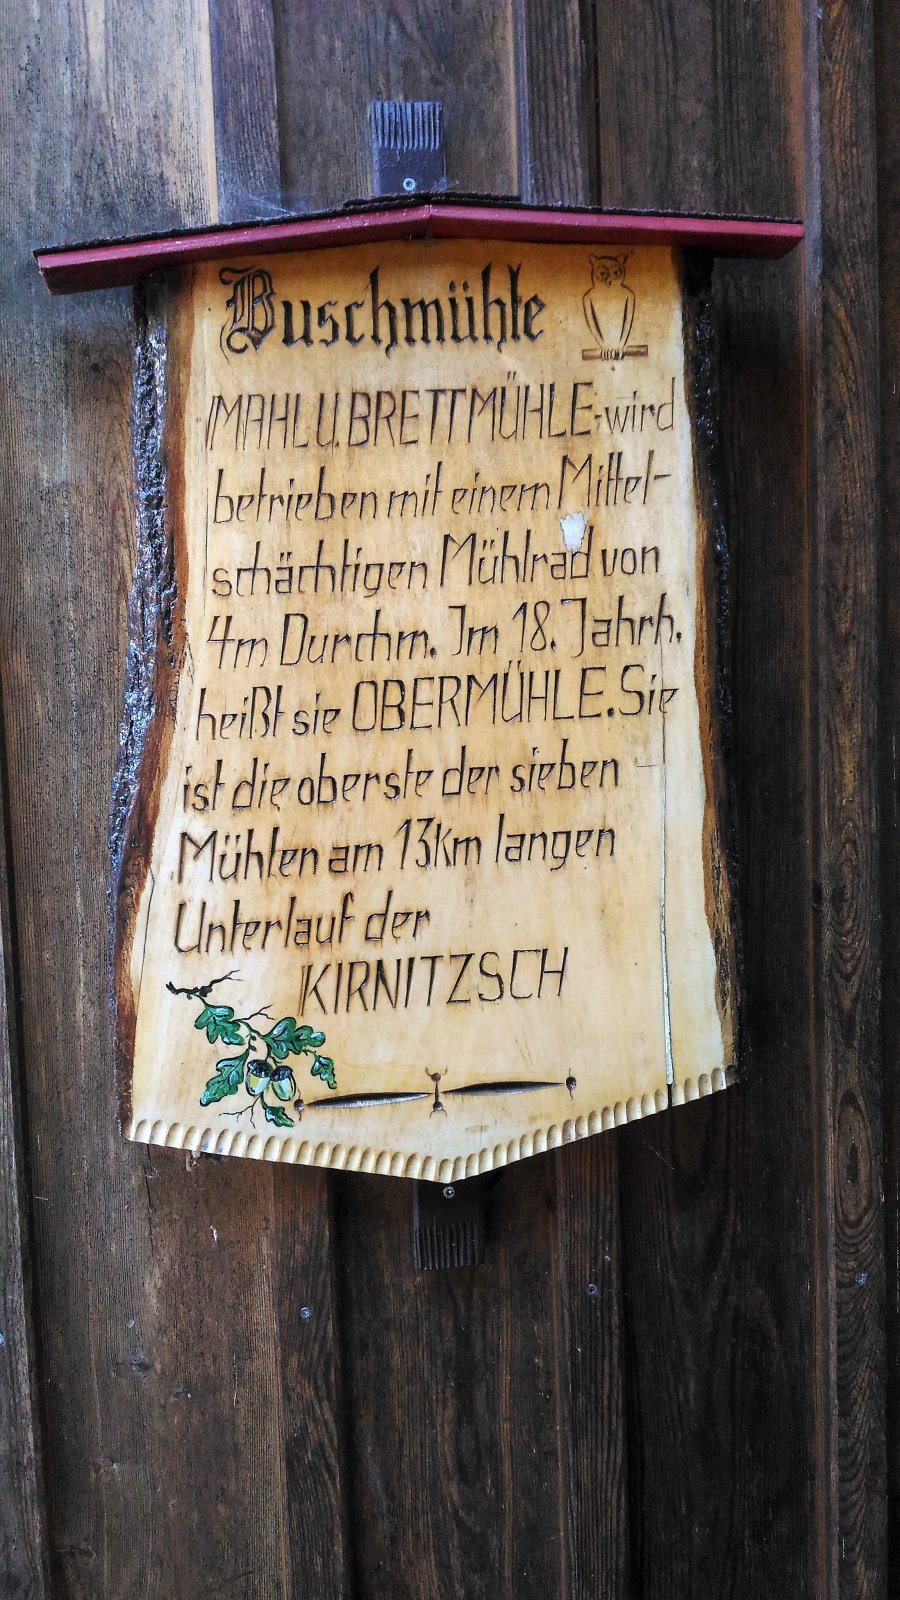 Buschmühle
MAHL U. BRETTMÜHLE, wird
betrieben mit einem Mittel-
schächtigen Mühlrad von
4m Durchm. Im 18. Jahrh.
heißt sie OBERMÜHLE. Sie
ist die oberste der sieben
Mühlen am 13km langen
Unterlauf der
KIRNITZSCH